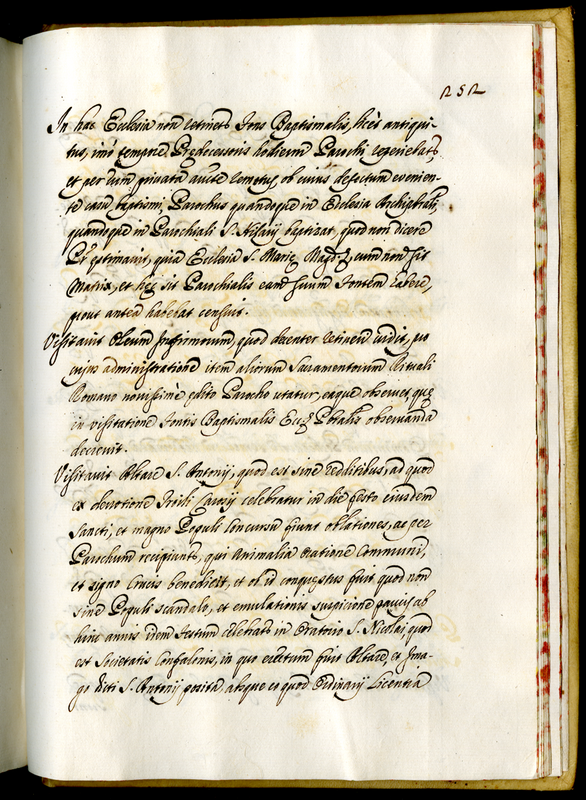 252
In hac Ecclesia non retinetur Fons Baptismalis, licet antiqui-
tus, imò tempore Predecessoris hodierni Parochi retinebatur,
et per eum privata aucte remotus, ob cuius defectum evenien-
te casu baptismi, Parochus quandoque in Ecclesia Archipbrali,
quandoque in Parochiali S. Hilarij baptizat, quod non dicere
Pr. estimavit, quia Ecclesia S. Marię Magd.ę cum non sit
Matrix, et hęc sit Parochialis eam suum Fontem habere,
prout antea habebat censuit.
Visitavit Oleum Infirmorum, quod decenter retineri vidit, pro
cujus administratione item aliorum Sacramentorum Rituali
Romano novissimè edito Parocho utatur, eaque observet, quę
in visitatione Fontis Baptismalis Eccl.ę Pbralis observanda
decrevit.
Visitavit Altare S. Antonij, quod est sine redditibus, ad quod
ex devotione celebratur in die festo eiusdem
Sancti, et magno Populi concursu fiunt oblationes, ac per
Parochum recipiuntur, qui Animalia oratione communi,
et signo Crucis benedicit, et ob id conquestus fuit quod non
sine Populi scandalo, et emulationis suspicione paucis ab
hinc annis idem Festum celebratur in Oratorio S. Nicolai, quod
est Societatis Confalonis, in quo erectum fuit Altare, et Ima-
go dicti S. Antonij posita absque eo quod Ordinarij Licentia